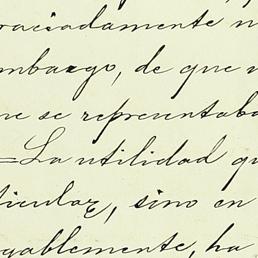 raciadamente n
mbargo, de que n
ne se representaba
=La utilidad qu
ticular, sino en
gablemente, ha